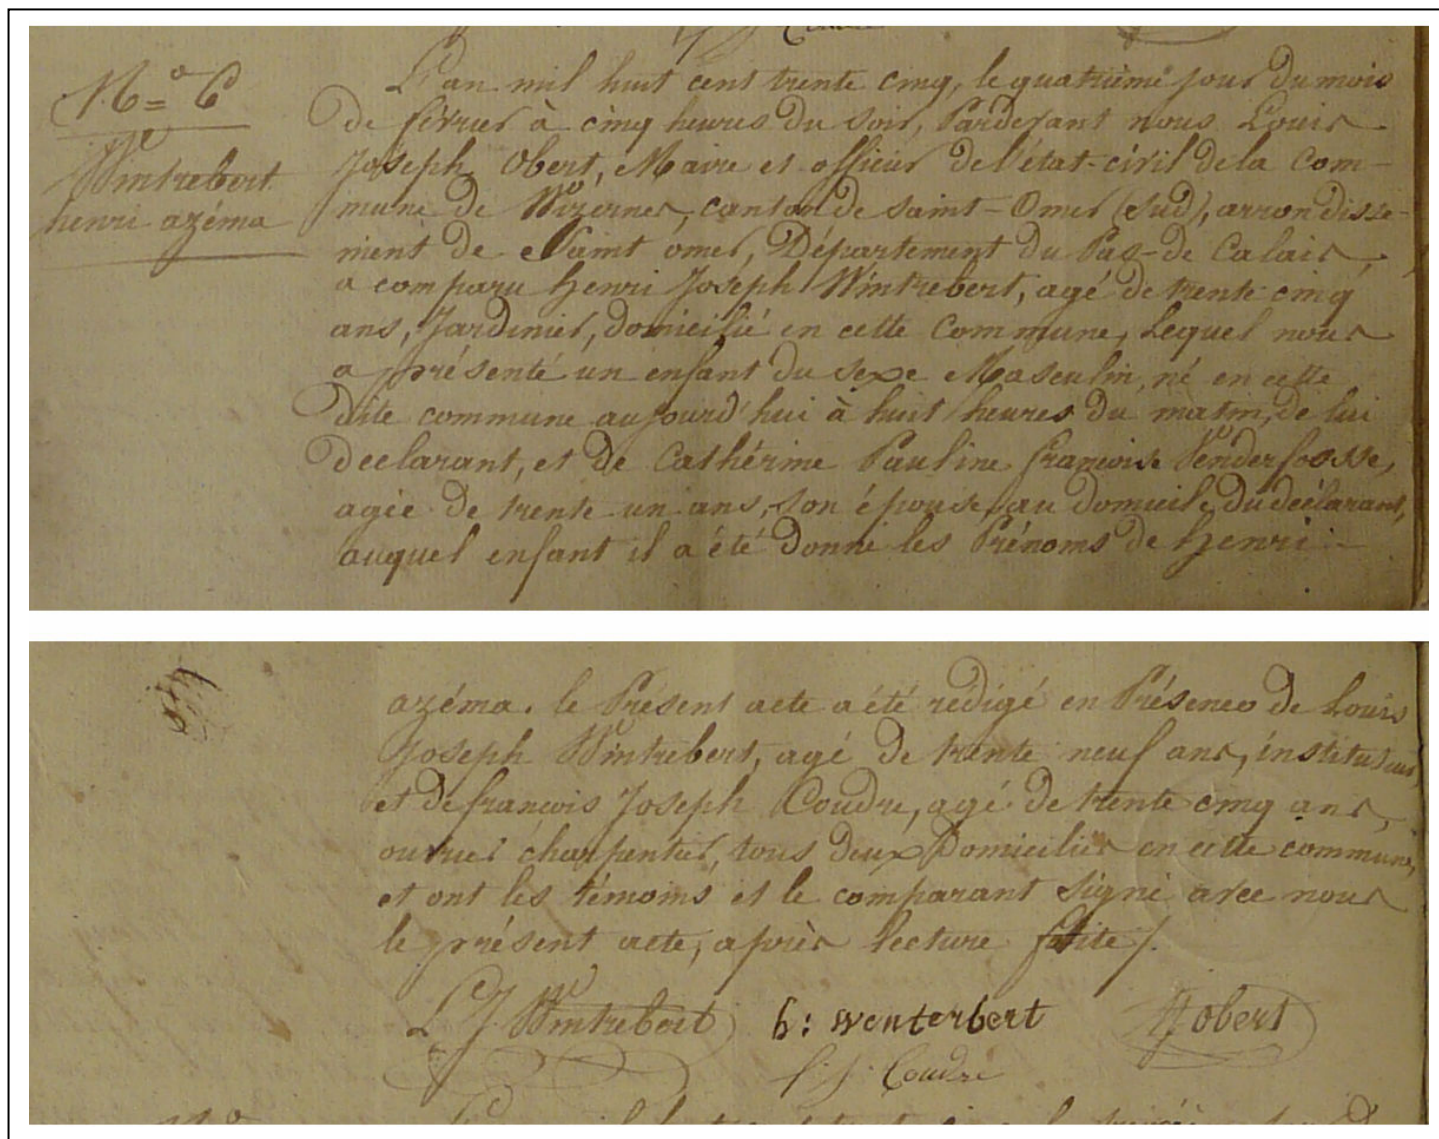 N.° 6
Wintrebert
henri azéma
L'an mil huit cent trente cinq, le quatrième jour du mois
de février à cinq heures du soir, Pardevant nous Louis
Joseph Obert, Maire et officier de l'état-civil de la Com-
mune de Wizernes, canton de Saint-Omer (sud), arrondisse-
ment de Saint omer, Département du Pas-de Calais,
a comparu henri Joseph Wintrebert, agé de trente cinq
ans, Jardinier, domicilié en cette Commune, Lequel nous
a présenté un enfant du sexe Masculin, né en cette
dite commune aujourd'hui à huit heures du matin, de lui
declarant, et de Cathérine Pauline françoise Venderfosse,
agée de trente un ans, son épouse, au domicile du déclarant,
auquel enfant il a été donné les Prénoms de henri-
azéma. le Présent acte a été rédigé en Présence de Louis
Joseph Wintrebert, agé de trente neuf ans, instituteur,
et de françois Joseph Coudre, agé de trente cinq ans,
ouvrier charpentier, tous deux Domiciliés en cette commune,
et ont les témoins et le comparant signé avec nous
le présent acte, après lecture faite /.
L J Wintrebert h: wenterbert Obert
f. j. Coudre